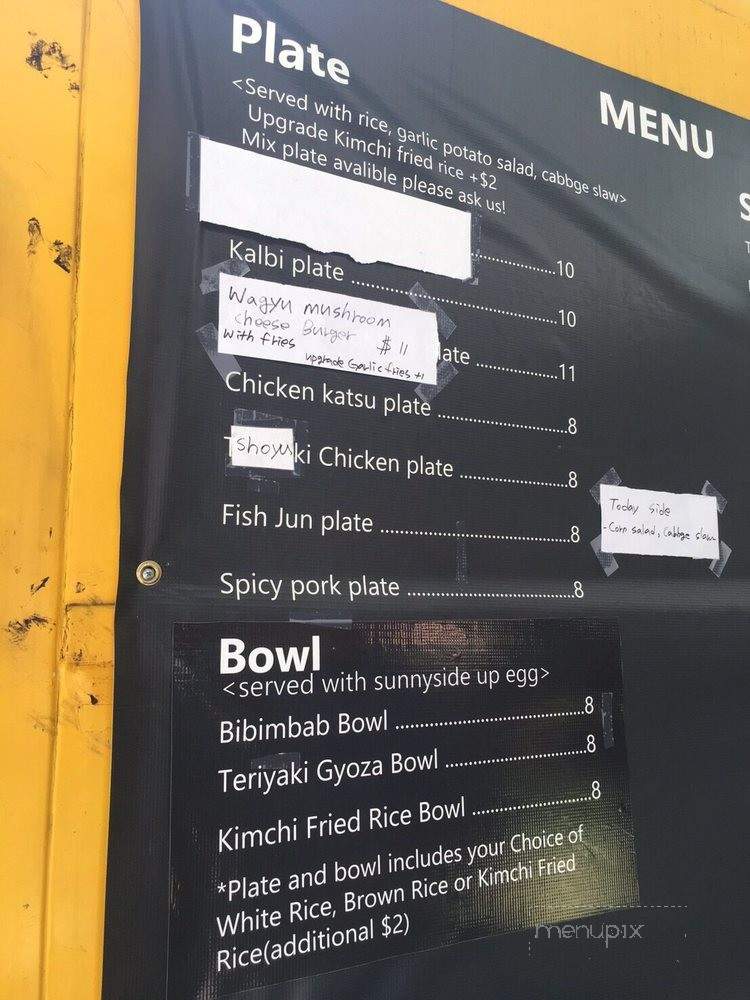 Plate
MENU
<Served with rice, garlic potato salad, cabbge slaw>
Upgrade Kimchi fried rice +$2
Mix plate avalible please ask us!
..............10
Kalbi plate ........................................10
Wagyu mushroom
cheese Burger $11
with fries
upgrade Garlic fries +1
late ..............11
Chicken katsu plate ......................8
T shoyu ki Chicken plate ....................8
Today side
- Corn salad, Cabbge slaw
Fish Jun plate ................................8
Spicy pork plate ............................8
Bowl
<served with sunnyside up egg>
Bibimbab Bowl ...............................8
Teriyaki Gyoza Bowl .......................8
Kimchi Fried Rice Bowl ...................8
*Plate and bowl includes your Choice of
White Rice, Brown Rice or Kimchi Fried
Rice(additional $2)
menupix